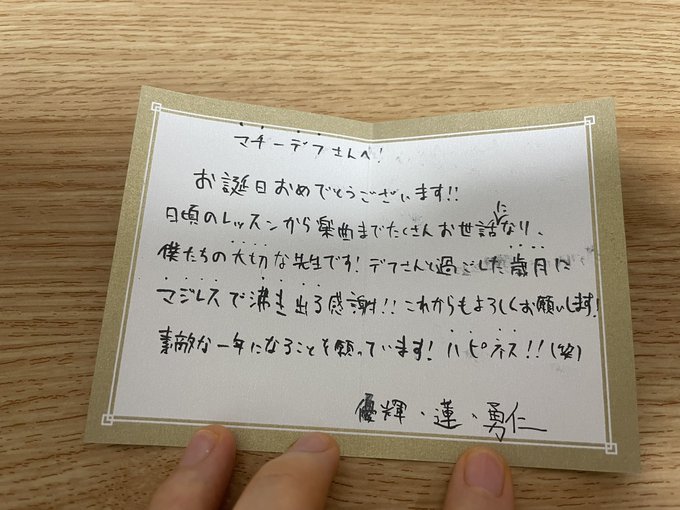 マチーデフさんへ!
お誕生日おめでとうございます!!
日頃のレッスンから楽曲までたくさんお世話になり、
僕たちの大切な先生です!デフさんと過ごした歳月に
マジレスで沸き出る感謝!!これからもよろしくお願いします!
素敵な一年になることを願っています!ハピネス!!(笑)
優輝・蓮・勇仁